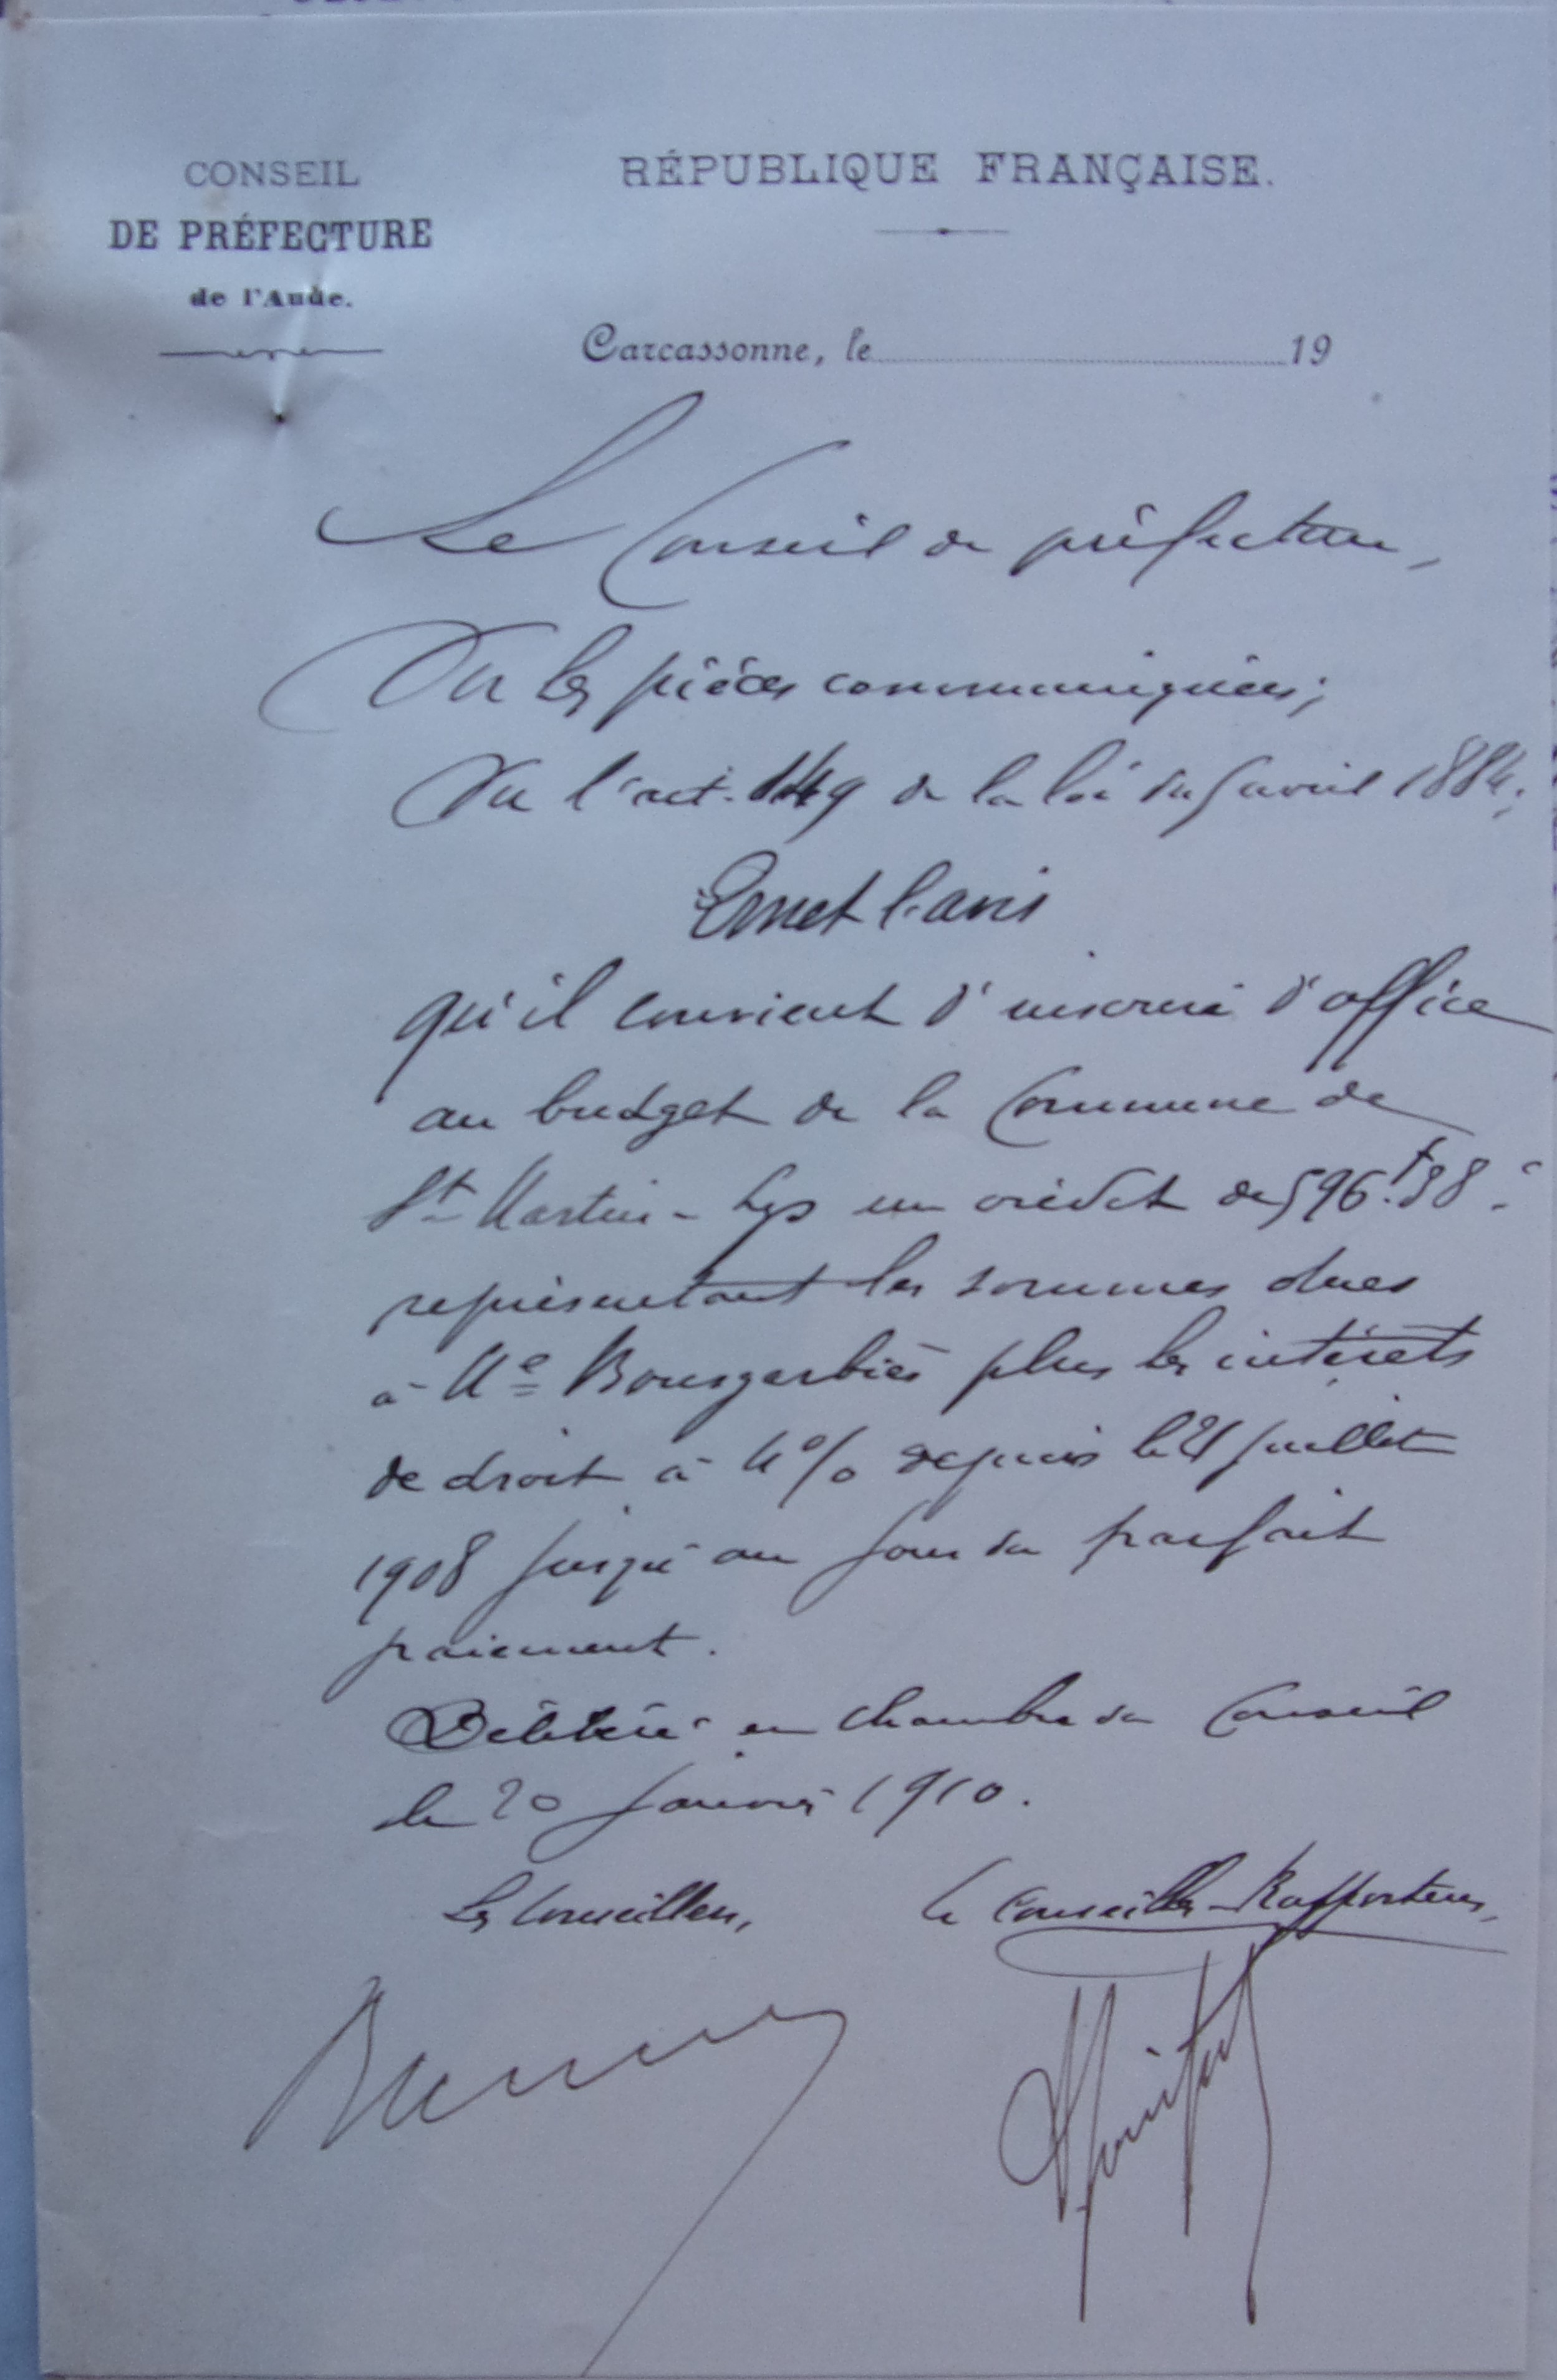 CONSEIL
DE PRÉFECTURE
de l'Aude.
RÉPUBLIQUE FRANÇAISE.
Carcassonne, le 19
Le Conseil de préfecture,
Vu les pièces communiquées;
Vu l'art. 149 de la loi du 5 avril 1884;
Emet l'avis
qu'il convient d'inscrire d'office
au budget de la Commune de
St Martin-Lys un crédit de 596.f 38
représentant les sommes dues
à Me Bousgarbiès plus les intérêts
de droit à 4% depuis le 21 juillet
1908 jusqu'au jour du parfait
paiement.
Délibéré en chambre du Conseil
le 20 Janvier 1910.
Les Conseillers,
Le Conseiller-Rapporteur,